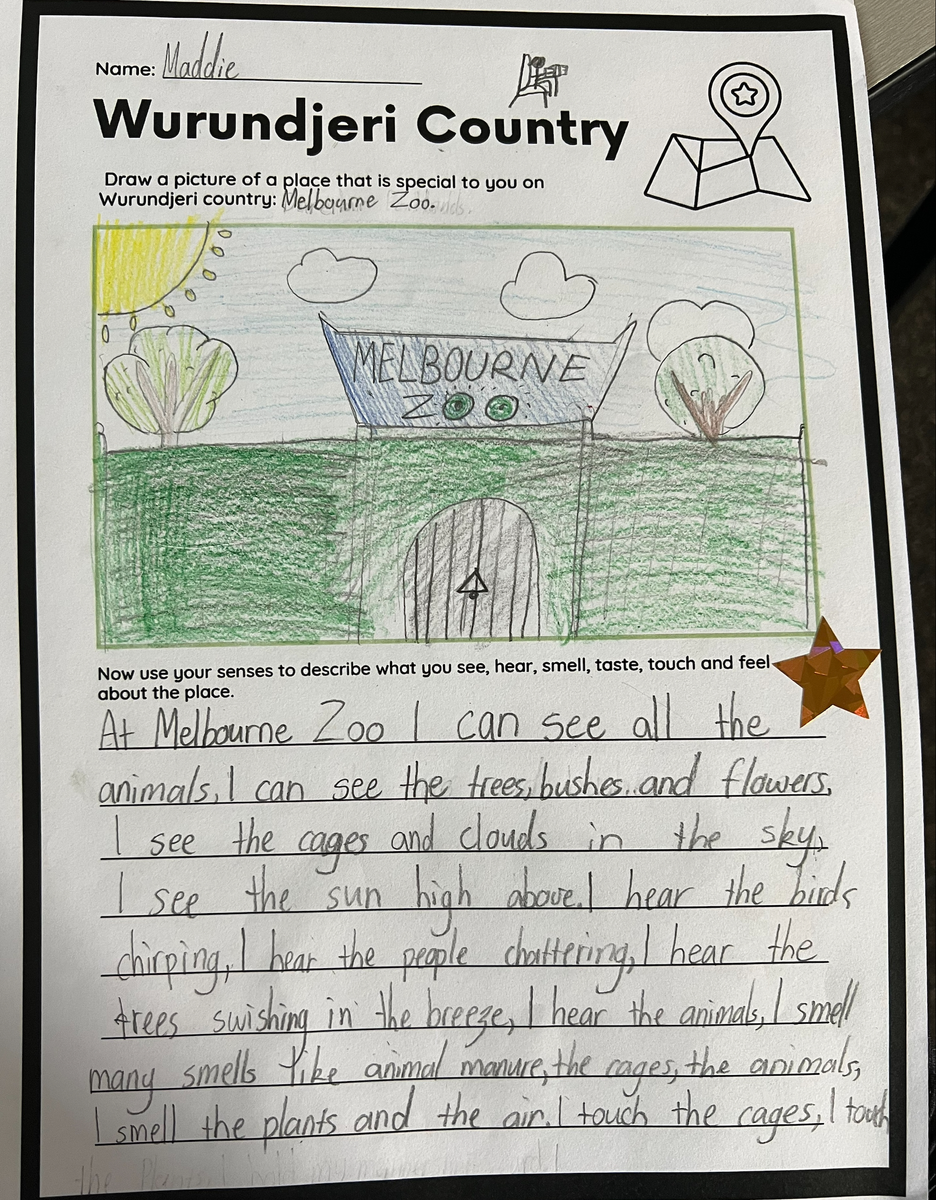 Name: Maddie
Wurundjeri Country
Draw a picture of a place that is special to you on
Wurundjeri country: Melbourne Zoo.
MELBOURNE
ZOO
Now use your senses to describe what you see, hear, smell, taste, touch and feel
about the place.
At Melbourne Zoo I can see all the
animals, I can see the trees, bushes and flowers,
I see the cages and clouds in the sky,
I see the sun high above. I hear the birds
chirping, I hear the people chattering, I hear the
trees swishing in the breeze, I hear the animals, I smell
many smells like animal manure, the cages, the animals,
I smell the plants and the air. I touch the cages, I touch
the plants